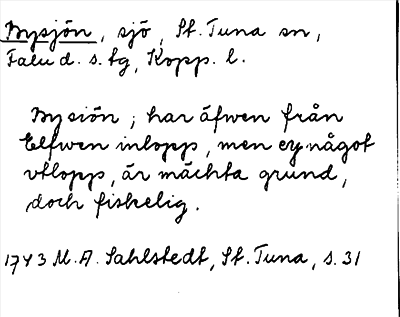 Bysjön, sjö, St. Tuna sn,
Falu d. s. tg, Kopp. l.
Bysiön; har äfwen från
Elfwen inlopp, men ey något
vtlopp, är mächta grund,
doch fiskelig.
1743 M. A. Sahlstedt, St. Tuna, s. 31